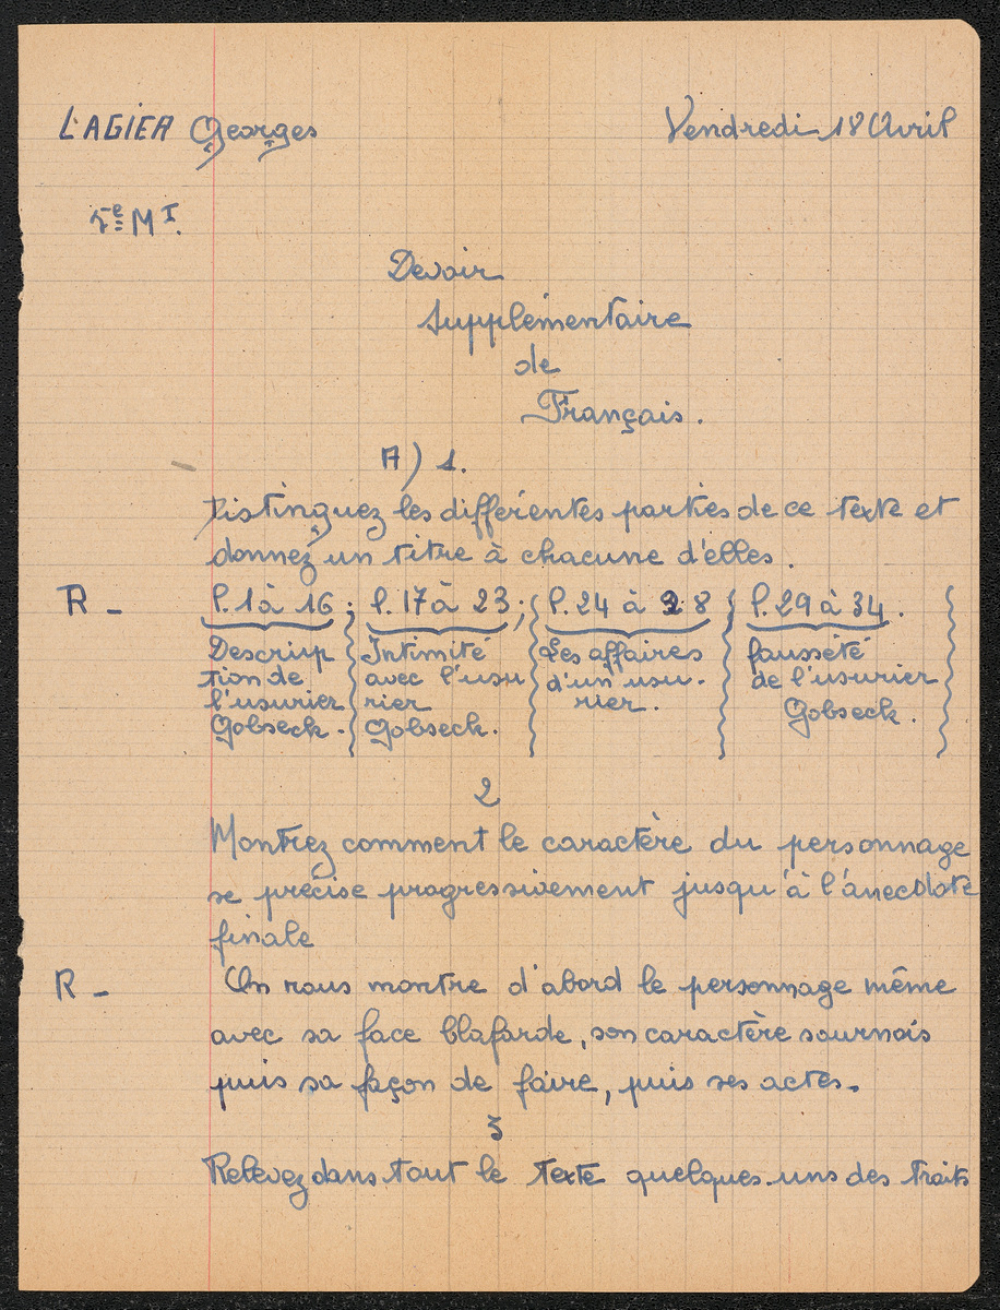 LAGIER Georges
Vendredi 18 Avril
5e M I.
Devoir
supplémentaire
de
Français.
A) 1.
Distinguez les différentes parties de ce texte et
donnez un titre à chacune d'elles.
R - l. 1 à 16 ; l. 17 à 23 ; l. 24 à 28 l. 29 à 34.
Descrip
tion de
l'usurier
Gobseck.
Intimité
avec l'usu
rier
Gobseck.
Les affaires
d'un usu-
rier.
fausseté
de l'usurier
Gobseck.
2
Montrez comment le caractère du personnage
se précise progressivement jusqu'à l'anecdote
finale
R - On nous montre d'abord le personnage même
avec sa face blafarde, son caractère sournois
puis sa façon de faire, puis ses actes.
3
Relevez dans tout le texte quelques-uns des traits